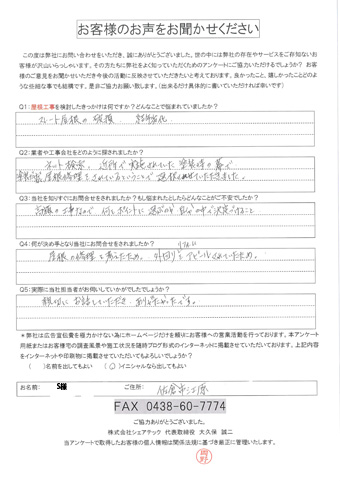 お客様のお声をお聞かせください
この度は弊社にお問い合わせをいただき、誠にありがとうございました。世の中には弊社の存在やサービスをご存知ないお
客様が沢山いらっしゃいます。その方たちに弊社をよく知っていただくためのアンケートにご協力いただけるでしょうか？お客
様のご意見をお聞かせいただき今後の活動に反映させていただきたいと考えております。良かったこと、嬉しかったことどのよ
うな些細な事でも結構です。是非ご協力お願い致します。(出来るだけ具体的に書いていただければ幸いです)
Q1:屋根工事を検討したきっかけは何ですか？どんなことで悩まれていましたか？
スレート屋根の破損、経年劣化
Q2:業者や工事会社をどのように探されましたか？
ネット検索、近所で実施されていた
屋根修理をされているということで選択させていただきました。
Q3:当社を知りすぐにお問合せをされましたか？もし悩まれたとしたらどんなことがご不安でしたか？
高額の工事なので、何をポイントに選ぶのか自分の中で決定づけること
Q4:何が決め手となり当社にお問合せをされましたか？
屋根の修理を考えたため。外回りをアピールされていたため。
Q5:実際に当社担当者がお伺いしていかがでしたでしょうか？
親切にお話していただき、ありがたかったです。
＊弊社は広告宣伝費を極力かけない為にホームページだけを頼りにお客様への営業活動を行っております。本アンケート
用紙またはお客様宅の調査風景や施工状況を随時ブログ形式のインターネットに掲載させていただいております。上記内容
をインターネットや印刷物に掲載させていただいてもよろしいでしょうか？
( )名前を出してもよい (〇)イニシャルなら出してもよい
お名前: S様 ご住所: 佐倉市江原
FAX 0438-60-7774
ご協力ありがとうございました。
株式会社シェアテック 代表取締役 大久保 誠二
当アンケートで取得したお客様の個人情報は関係法規に基づき厳正に管理いたします。